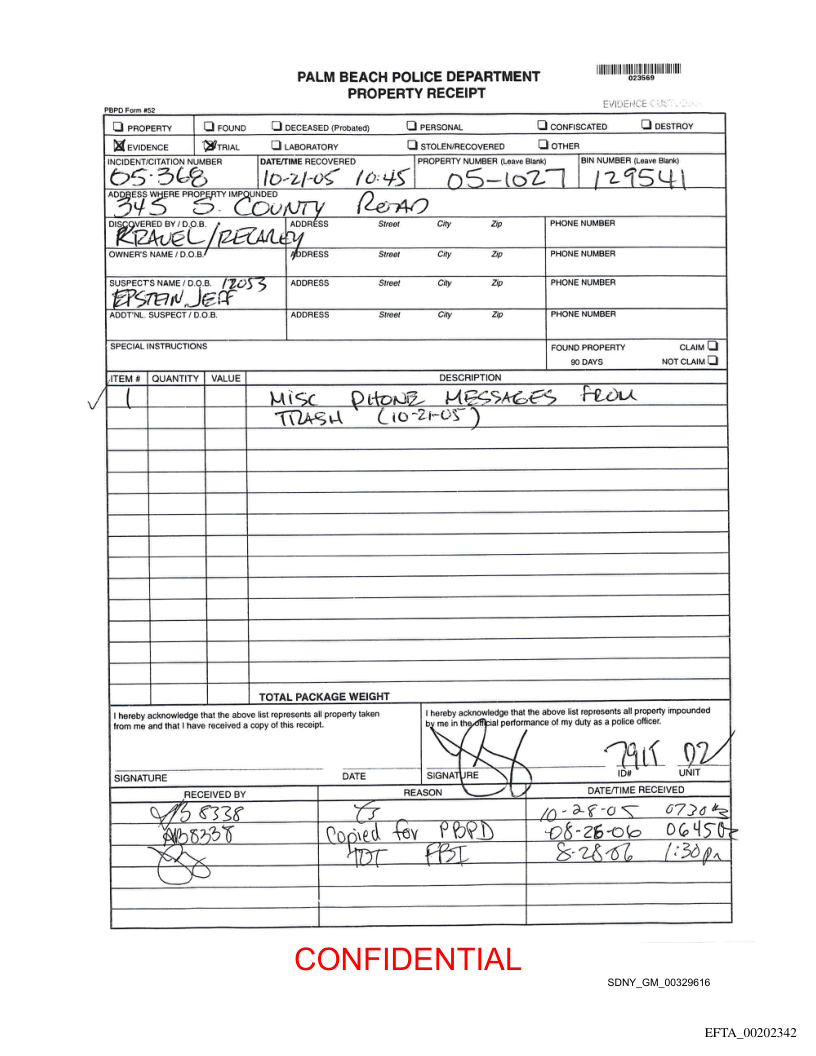 PALM BEACH POLICE DEPARTMENT
PROPERTY RECEIPT
023569
EVIDENCE CUSTODIAN
PBPD Form #52
PROPERTY FOUND DECEASED (Probated) PERSONAL CONFISCATED DESTROY
EVIDENCE TRIAL LABORATORY STOLEN/RECOVERED OTHER
INCIDENT/CITATION NUMBER DATE/TIME RECOVERED PROPERTY NUMBER (Leave Blank) BIN NUMBER (Leave Blank)
05-368 10-21-05 10:45 05-1027 129541
ADDRESS WHERE PROPERTY IMPOUNDED
345 S. COUNTY ROAD
DISCOVERED BY / D.O.B. ADDRESS Street City Zip PHONE NUMBER
KRAUEL/RECAREY
OWNER'S NAME / D.O.B. ADDRESS Street City Zip PHONE NUMBER
SUSPECT'S NAME / D.O.B. 12053 ADDRESS Street City Zip PHONE NUMBER
EPSTEIN, JEFF
ADDT'NL. SUSPECT / D.O.B. ADDRESS Street City Zip PHONE NUMBER
SPECIAL INSTRUCTIONS FOUND PROPERTY CLAIM
90 DAYS NOT CLAIM
ITEM # QUANTITY VALUE DESCRIPTION
1 MISC PHONE MESSAGES FROM
TRASH (10-21-05)
TOTAL PACKAGE WEIGHT
I hereby acknowledge that the above list represents all property taken
from me and that I have received a copy of this receipt.
I hereby acknowledge that the above list represents all property impounded
by me in the official performance of my duty as a police officer.
7915 D2
SIGNATURE DATE SIGNATURE ID# UNIT
RECEIVED BY REASON DATE/TIME RECEIVED
8338 10-28-05 0730
AB8338 Copied for PBPD 08-28-06 0645
TOT FBI 8-28-06 1:30pm
CONFIDENTIAL
SDNY_GM_00329616
EFTA_00202342